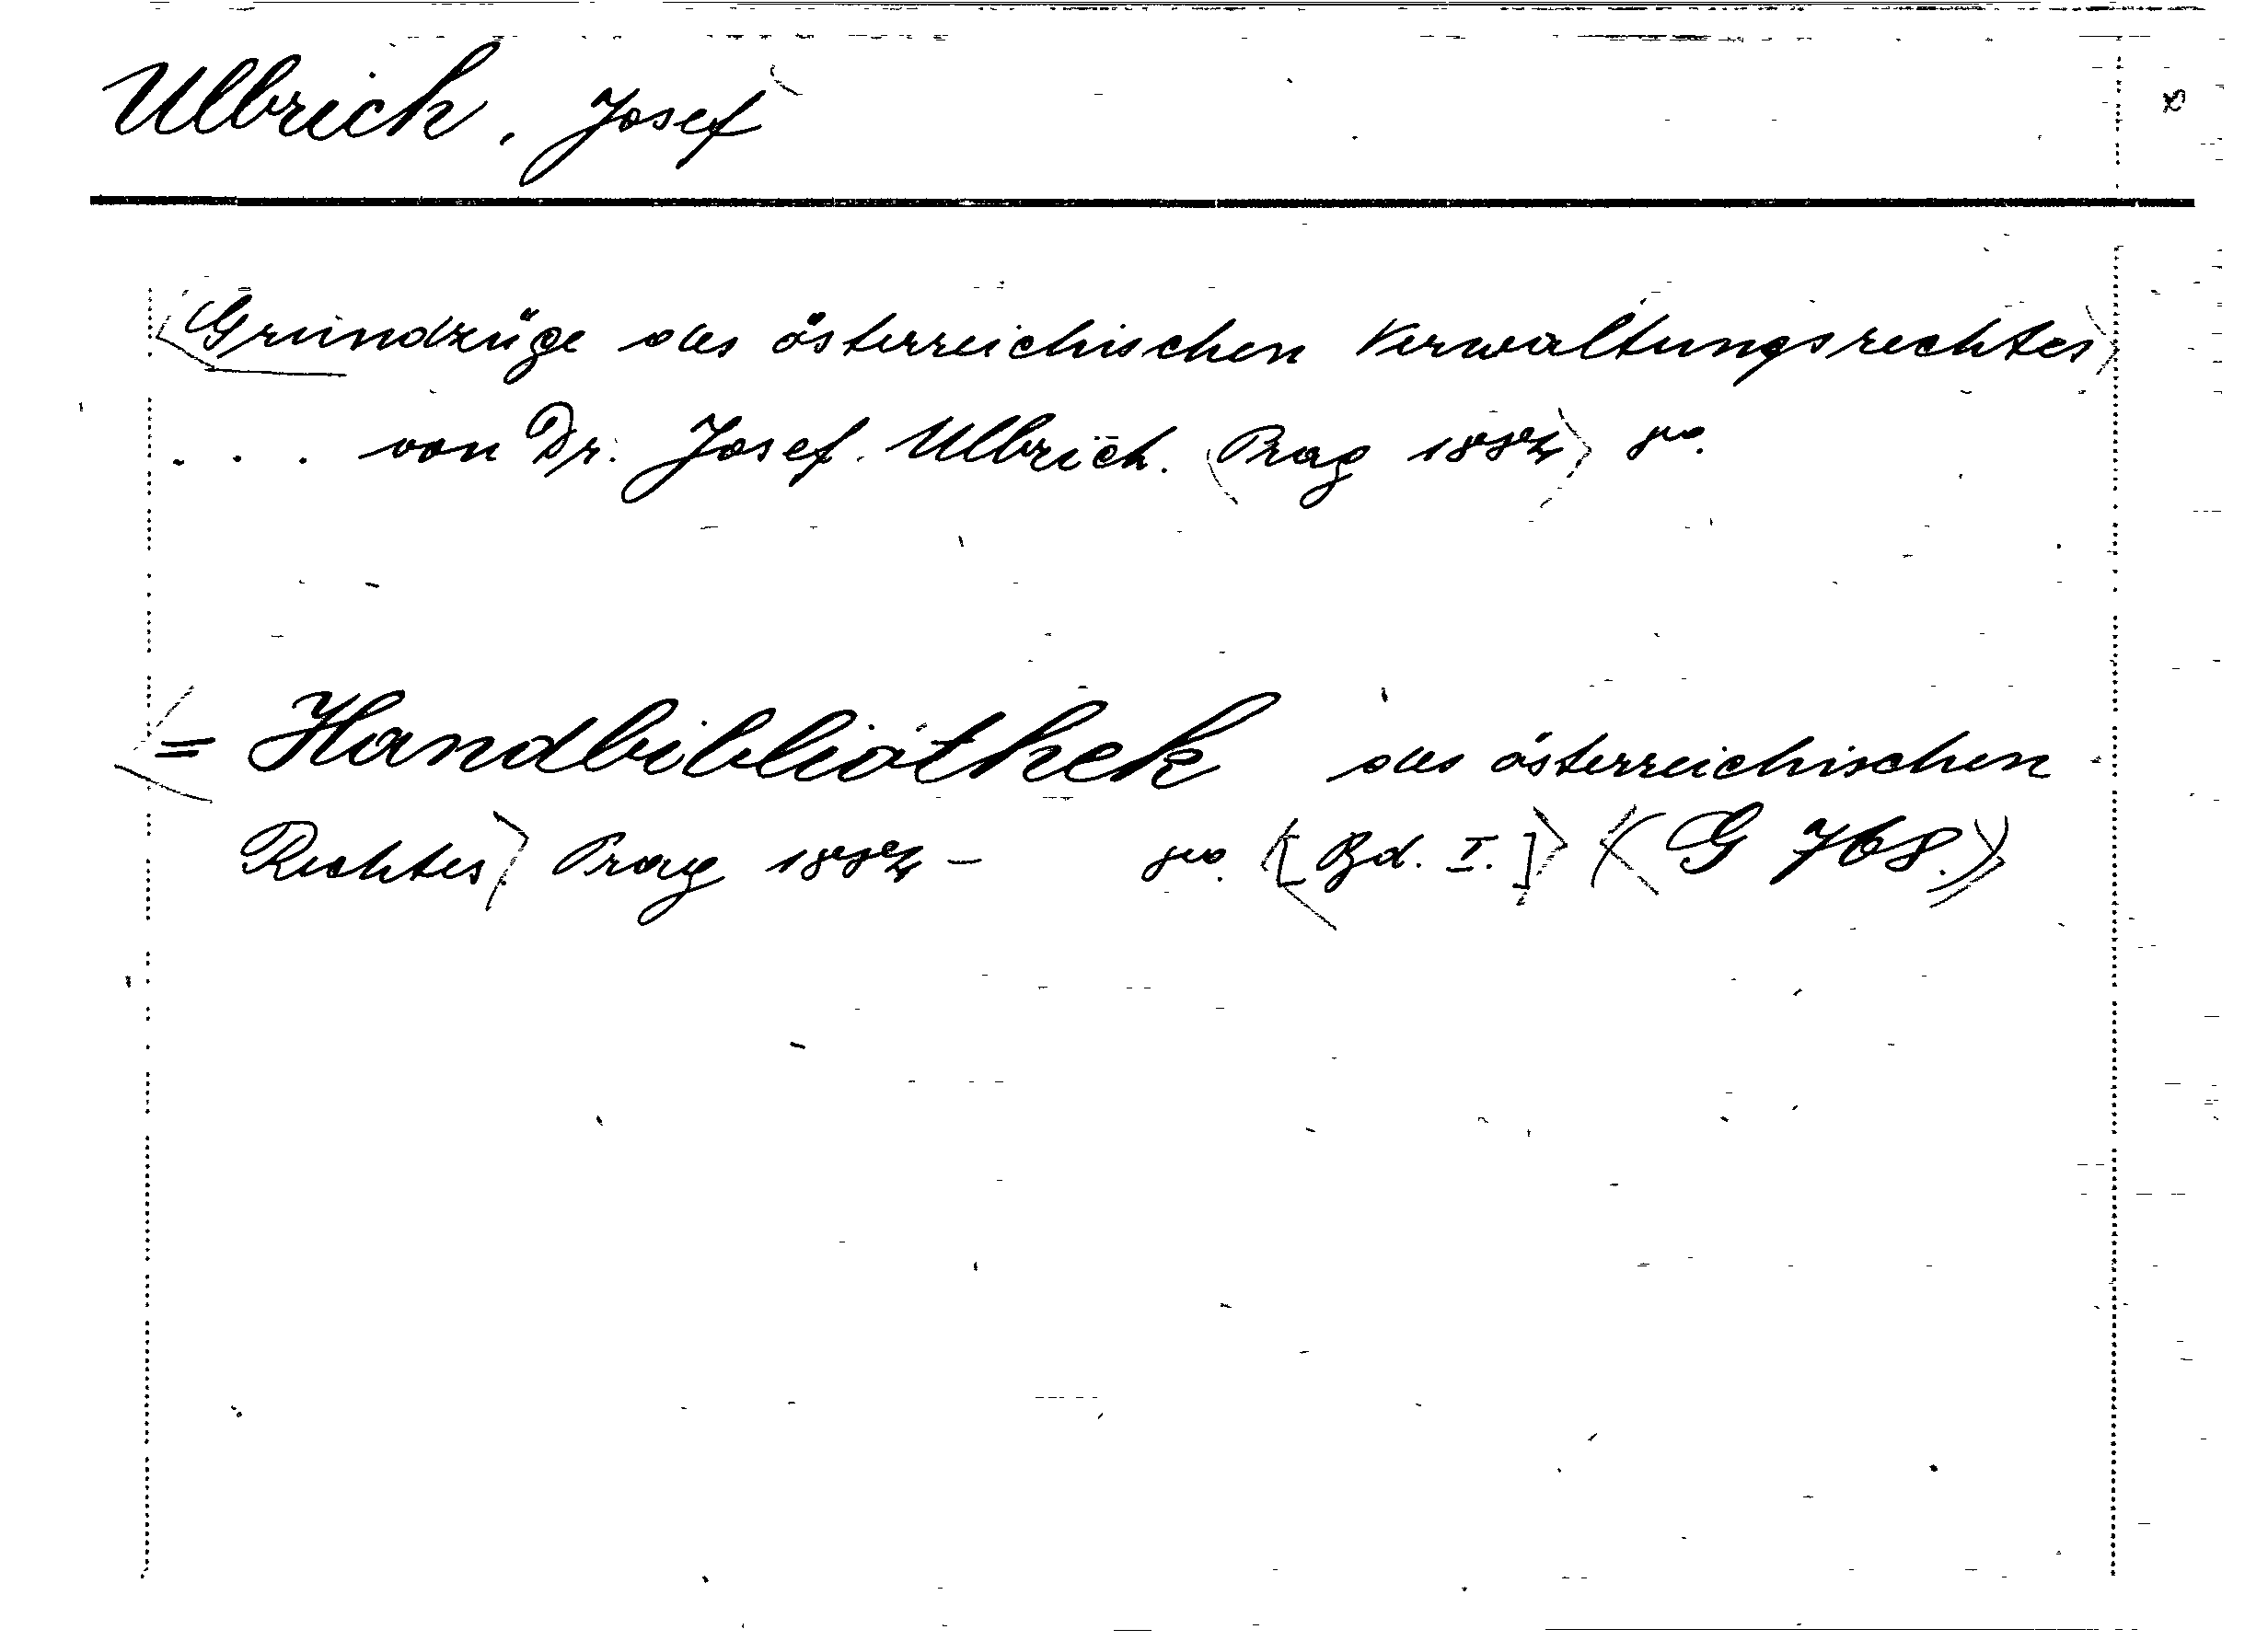 Ulbrich, Josef
Grundzüge des österreichischen Verwaltungsrechtes
. . . von Dr. Josef Ulbrich. Prag 1884 8vo.
= Handbibliothek des österreichischen
Rechtes Prag 1884 – 8vo. [Bd. I.] (G 768.)